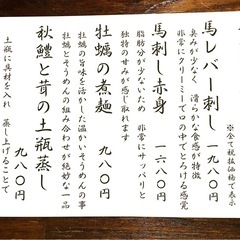 ※全て税抜価格で表示
馬レバー刺し 一九八〇円
臭みが少なく 滑らかな食感が特徴
非常にクリーミーで口の中でとろける感覚
馬刺し赤身 一六八〇円
脂肪分が少ないため 非常にサッパリと
独特の甘みが感じ取れます
牡蠣の煮麺 九八〇円
牡蠣の旨味を活かした温かいそうめんの事
牡蠣とそうめんの組み合わせが絶妙な一品
秋鱧と茸の土瓶蒸し 九八〇円
土瓶に具材を入れ 蒸し上げることで